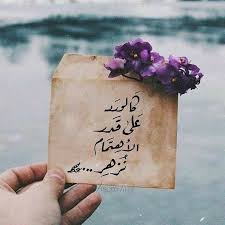 كالورد
على قدر
الاهتمام
نُزهر...